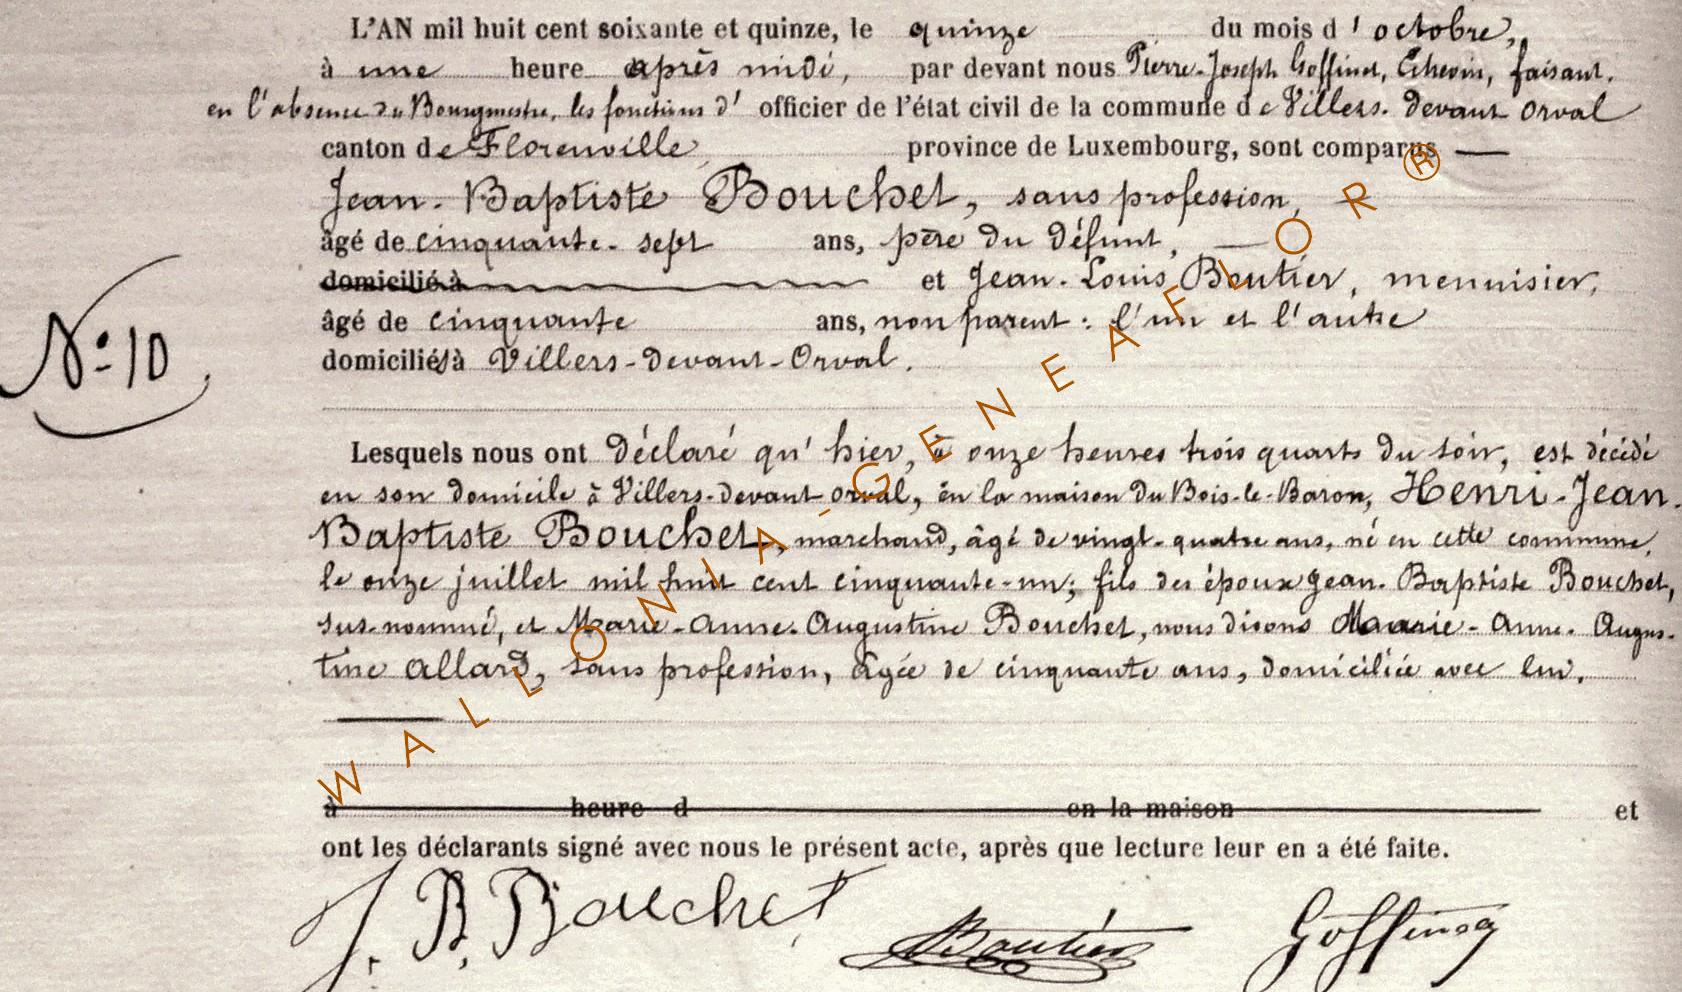 L'AN mil huit cent soixante et quinze, le quinze du mois d'octobre,
à une heure après midi, par devant nous Pierre-Joseph Goffinet, Echevin, faisant,
en l'absence du Bourgmestre, les fonctions d' officier de l'état civil de la commune de Villers-devant Orval
canton de Florenville province de Luxembourg, sont comparus
Jean-Baptiste Bouchet, sans profession,
âgé de cinquante-sept ans, père du défunt,
domicilié à et Jean-Louis Boutier, menuisier,
âgé de cinquante ans, non parent : l'un et l'autre
domiciliés à Villers-devant-Orval.
N° 10
Lesquels nous ont déclaré qu'hier, à onze heures trois quarts du soir, est décédé
en son domicile à Villers-devant-Orval, en la maison du Bois-le-Baron, Henri-Jean-
Baptiste Bouchet, marchand, âgé de vingt-quatre ans, né en cette commune,
le onze juillet mil huit cent cinquante-un; fils des époux Jean-Baptiste Bouchet,
sus-nommé, et Marie-Anne-Augustine Bouchet, nous disons Marie-Anne-Augus-
tine Allard, sans profession, âgée de cinquante ans, domiciliée avec lui.
à heure d en la maison et
ont les déclarants signé avec nous le présent acte, après que lecture leur en a été faite.
J. B. Bouchet Boutier Goffinet
WALLONIA-GENEAFLOR ®